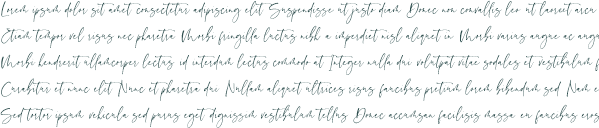 Lorem ipsum dolor sit amet consectetur adipiscing elit Suspendisse ut justo diam Donec non convallis leo ut laoreet arcu
Etiam tempor vel risus nec pharetra Morbi fringilla luctus nibh a imperdiet nisl aliquet in Morbi varius augue ac augu
Morbi hendrerit ullamcorper lectus id interdum lectus commodo at Integer nulla dui volutpat vitae sodales et vestibulum f
Curabitur et nunc elit Nunc et pharetra dui Nullam aliquet ultrices risus faucibus pretium lorem bibendum sed Nam e
Sed tortor ipsum vehicula sed purus eget dignissim vestibulum tellus Donec accumsan facilisis massa en faucibus eros